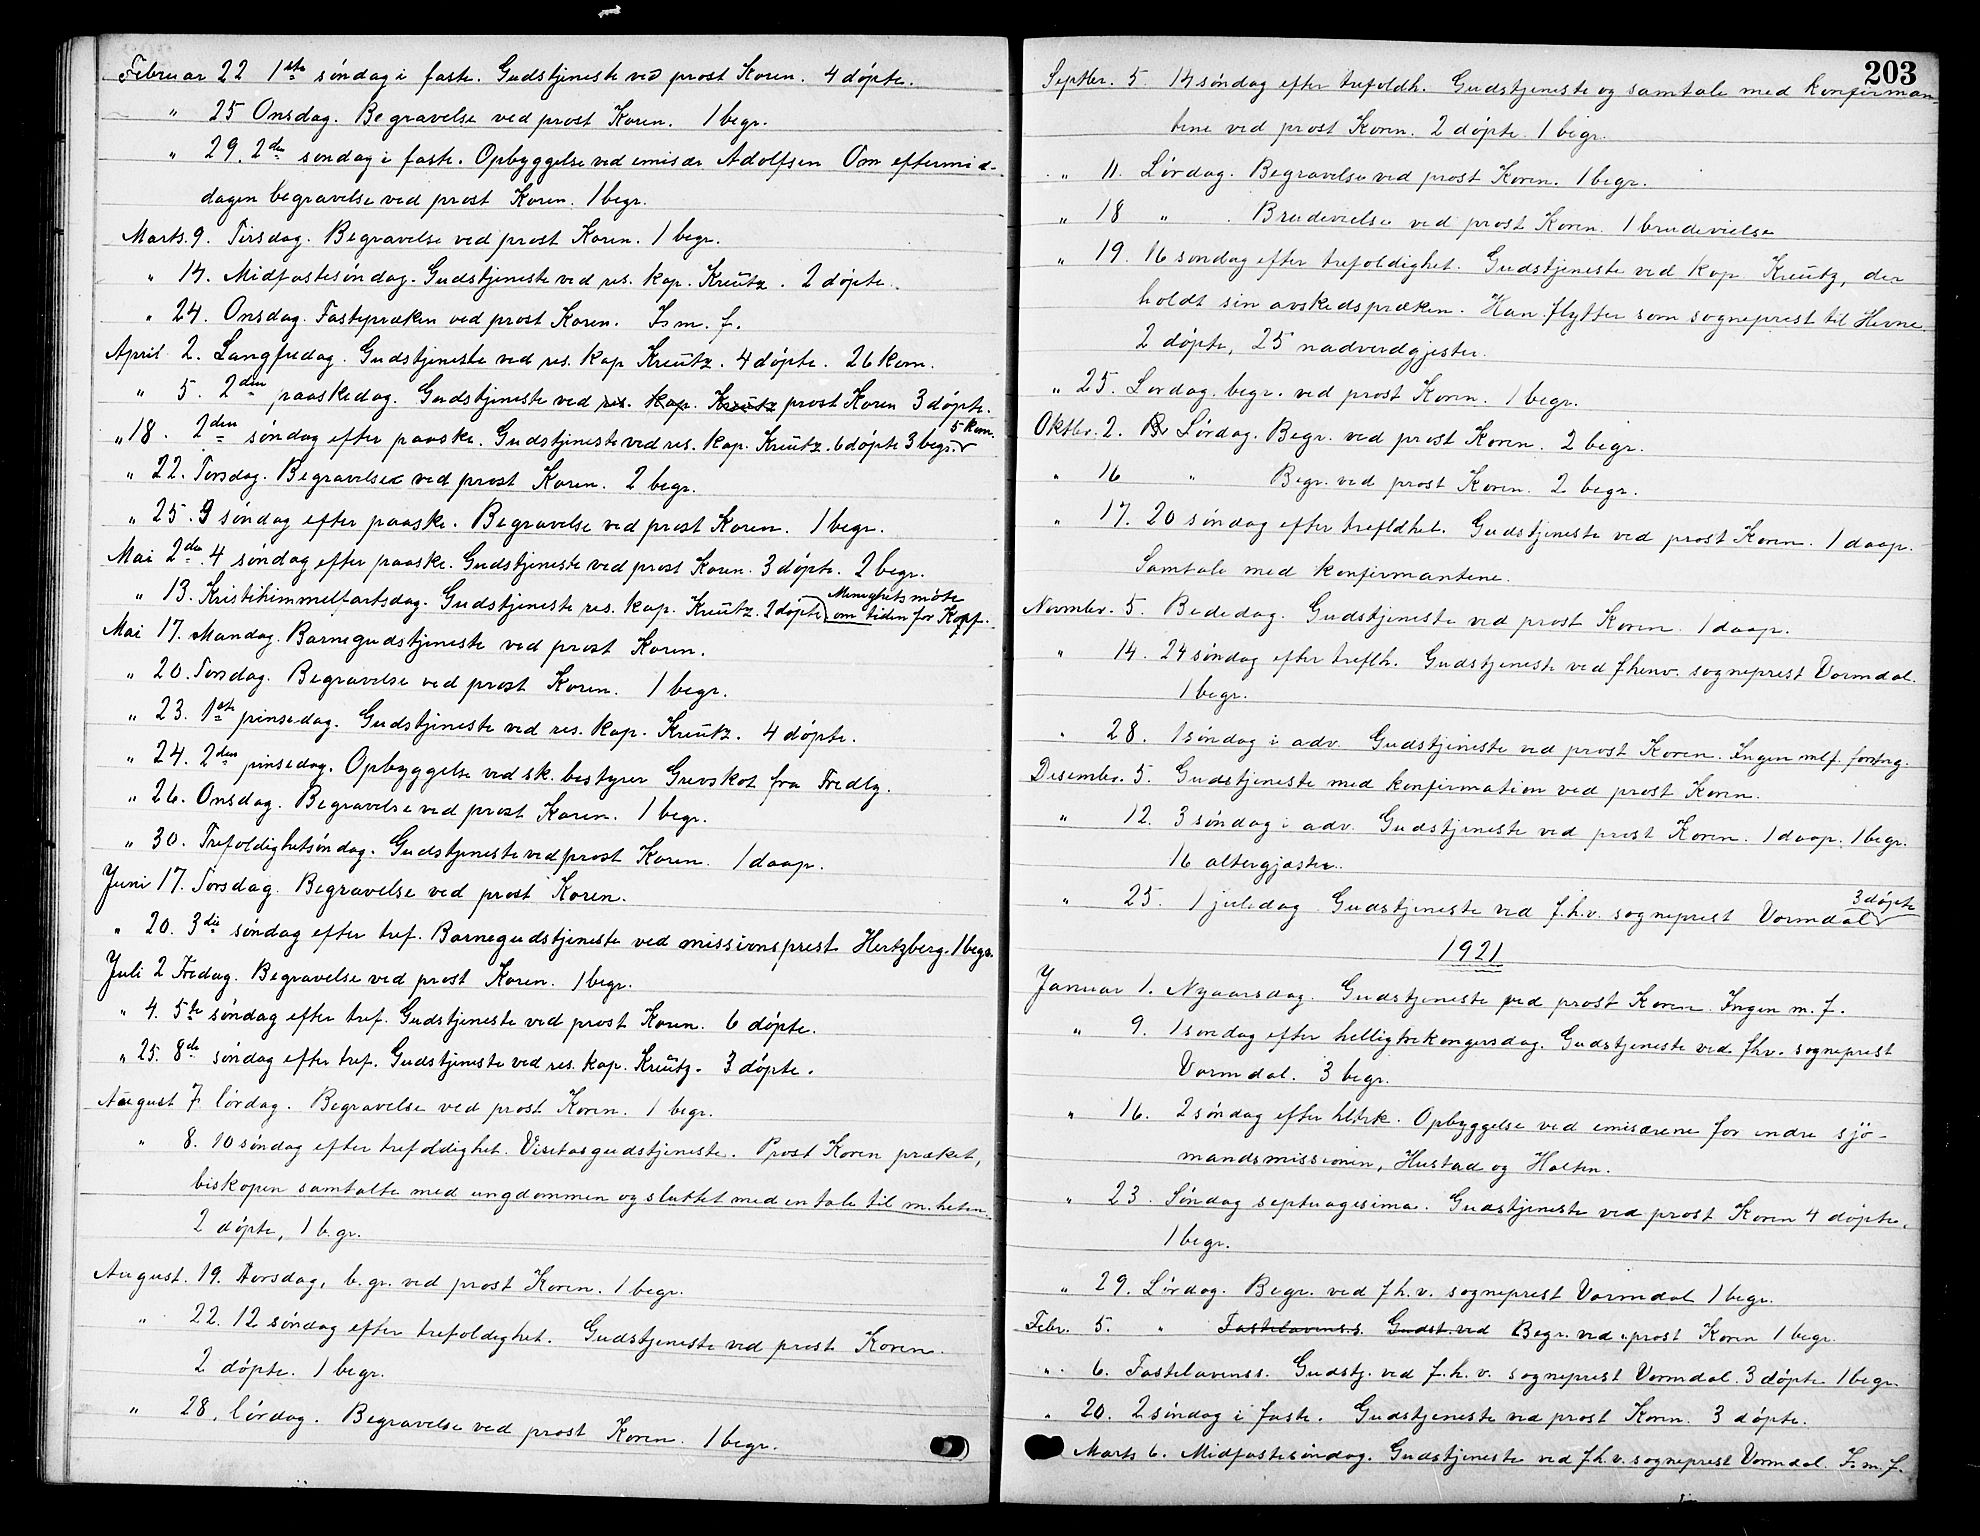 Februar 22 1ste søndag i faste. Gudstjeneste ved prost Koren. 4 døpte.
" 25 Onsdag. Begravelse ved prost Koren. 1 begr.
" 29. 2den søndag i faste. Opbyggelse ved emisær Adolfsen Om eftermid-
dagen begravelse ved prost Koren. 1 begr.
Marts. 9. Tirsdag. Begravelse ved prost Koren. 1 begr.
" 14. Midfastesøndag. Gudstjeneste ved res. kap. Kreutz. 2 døpte.
" 24. Onsdag. Fastepræken ved prost Koren. I. m. f.
April 2. Langfredag. Gudstjeneste ved res. kap Kreutz. 4 døpte. 26 kom.
" 5. 2den paaskedag. Gudstjeneste ved res. kap. Kreutz prost Koren 3 døpte.
5 kom.
" 18. 2den søndag efter paaske. Gudstjeneste ved res. kap. Kreutz. 6 døpte 3 begr.
" 22. Torsdag. Begravelse ved prost Koren. 2 begr.
" 25. 3 søndag efter paaske. Begravelse ved prost Koren. 1 begr.
Mai 2den. 4 søndag efter paaske. Gudstjeneste ved prost Koren. 3 døpte. 2 begr.
Menighetsmøte
" 13. Kristihimmelfartsdag. Gudstjeneste res. kap. Kreutz. 2 døpte om tiden for Kopf.
Mai 17. Mandag. Barnegudstjeneste ved prost Koren.
" 20. Torsdag. Begravelse ved prost Koren. 1 begr.
" 23. 1ste pinsedag. Gudstjeneste ved res. kap. Kreutz. 4 døpte.
" 24. 2den pinsedag. Opbyggelse ved sk. bestyrer Grevskot fra Fredly.
" 26. Onsdag. Begravelse ved prost Koren. 1 begr.
" 30. Trefoldighetsøndag. Gudstjeneste ved prost Koren. 1 daap.
Juni 17. Torsdag. Begravelse ved prost Koren.
" 20. 3die søndag efter tref. Barnegudstjeneste ved missionsprest Hertzberg. 1 begr.
Juli 2 Fredag. Begravelse ved prost Koren. 1 begr.
" 4. 5te søndag efter tref. Gudstjeneste ved prost Koren. 6 døpte.
" 25. 8de søndag efter tref. Gudstjeneste ved res. kap. Kreutz. 3 døpte.
August 7 lørdag. Begravelse ved prost Koren. 1 begr.
" 8. 10 søndag efter trefoldighet. Visitasgudstjeneste. Prost Koren præket,
biskopen samtalte med ungdommen og sluttet med en tale til m.heten.
2 døpte, 1 b.gr.
August. 19. Torsdag, b.gr. ved prost Koren. 1 begr.
" 22. 12 søndag efter trefoldighet. Gudstjeneste ved prost Koren.
2 døpte. 1 begr.
" 28, lørdag. Begravelse ved prost Koren. 1 begr.
203
Septbr. 5. 14 søndag efter trefoldh. Gudstjeneste og samtale med konfirman-
tene ved prost Koren. 2 døpte. 1 begr.
" 11. Lørdag. Begravelse ved prost Koren. 1 begr.
" 18 " . Brudevielse ved prost Koren. 1 brudevielse
" 19. 16 søndag efter trefoldighet. Gudstjeneste ved kap. Kreutz, der
holdt sin avskedspræken. Han flytter som sogneprest til Hevne.
2 døpte, 25 nadverdgjester.
" 25. Lørdag. begr. ved prost Koren. 1 begr.
Oktbr. 2. Lørdag. Begr. ved prost Koren. 2 begr.
" 16 " Begr. ved prost Koren. 2 begr.
" 17. 20 søndag efter trefldhet. Gudstjeneste ved prost Koren. 1 daap.
Samtale med konfirmantene.
Novmbr. 5. Bededag. Gudstjeneste ved prost Koren. 1 daap.
" 14. 24 søndag efter treflh. Gudstjeneste ved fhenv. sogneprest Vormdal.
1 begr.
" 28. 1 søndag i adv. Gudstjeneste ved prost Koren. Ingen mlf. forrtng.
Desembr. 5. Gudstjeneste med konfirmation ved prost Koren.
" 12. 3 søndag i adv. Gudstjeneste ved prost Koren. 1 daap. 1 begr.
16 altergjæster.
3 døpte
" 25. 1 juledag Gudstjeneste ved f.h.v. sogneprest Vormdal
1921
Januar 1. Nyaarsdag. Gudstjeneste ved prost Koren. Ingen m. f.
" 9. 1 søndag efter helligtrekongersdag. Gudstjeneste ved. fhv. sogneprest
Vormdal. 3 begr.
" 16. 2 søndag efter hltrk. Opbyggelse ved emisærene for indre sjø-
mandsmissionen, Hustad og Holten.
" 23. Søndag septuagesima. Gudstjeneste ved prost Koren 4 døpte,
1 begr.
" 29. Lørdag. Begr. ved f h. v. sogneprest Vormdal 1 begr.
Febr. 5. " Fastelavenss. Gudst. ved Begr. ved prost Koren 1 begr.
" 6. Fastelavenss. Gudstj. ved f. h. v. sogneprest Vormdal. 3 døpte 1 begr.
" 20. 2 søndag i faste. Gudstjeneste ved prost Koren. 3 døpte.
Marts 6. Midfastesøndag. Gudstjeneste ved f h. v. sogneprest Vormdal. I. m. f.